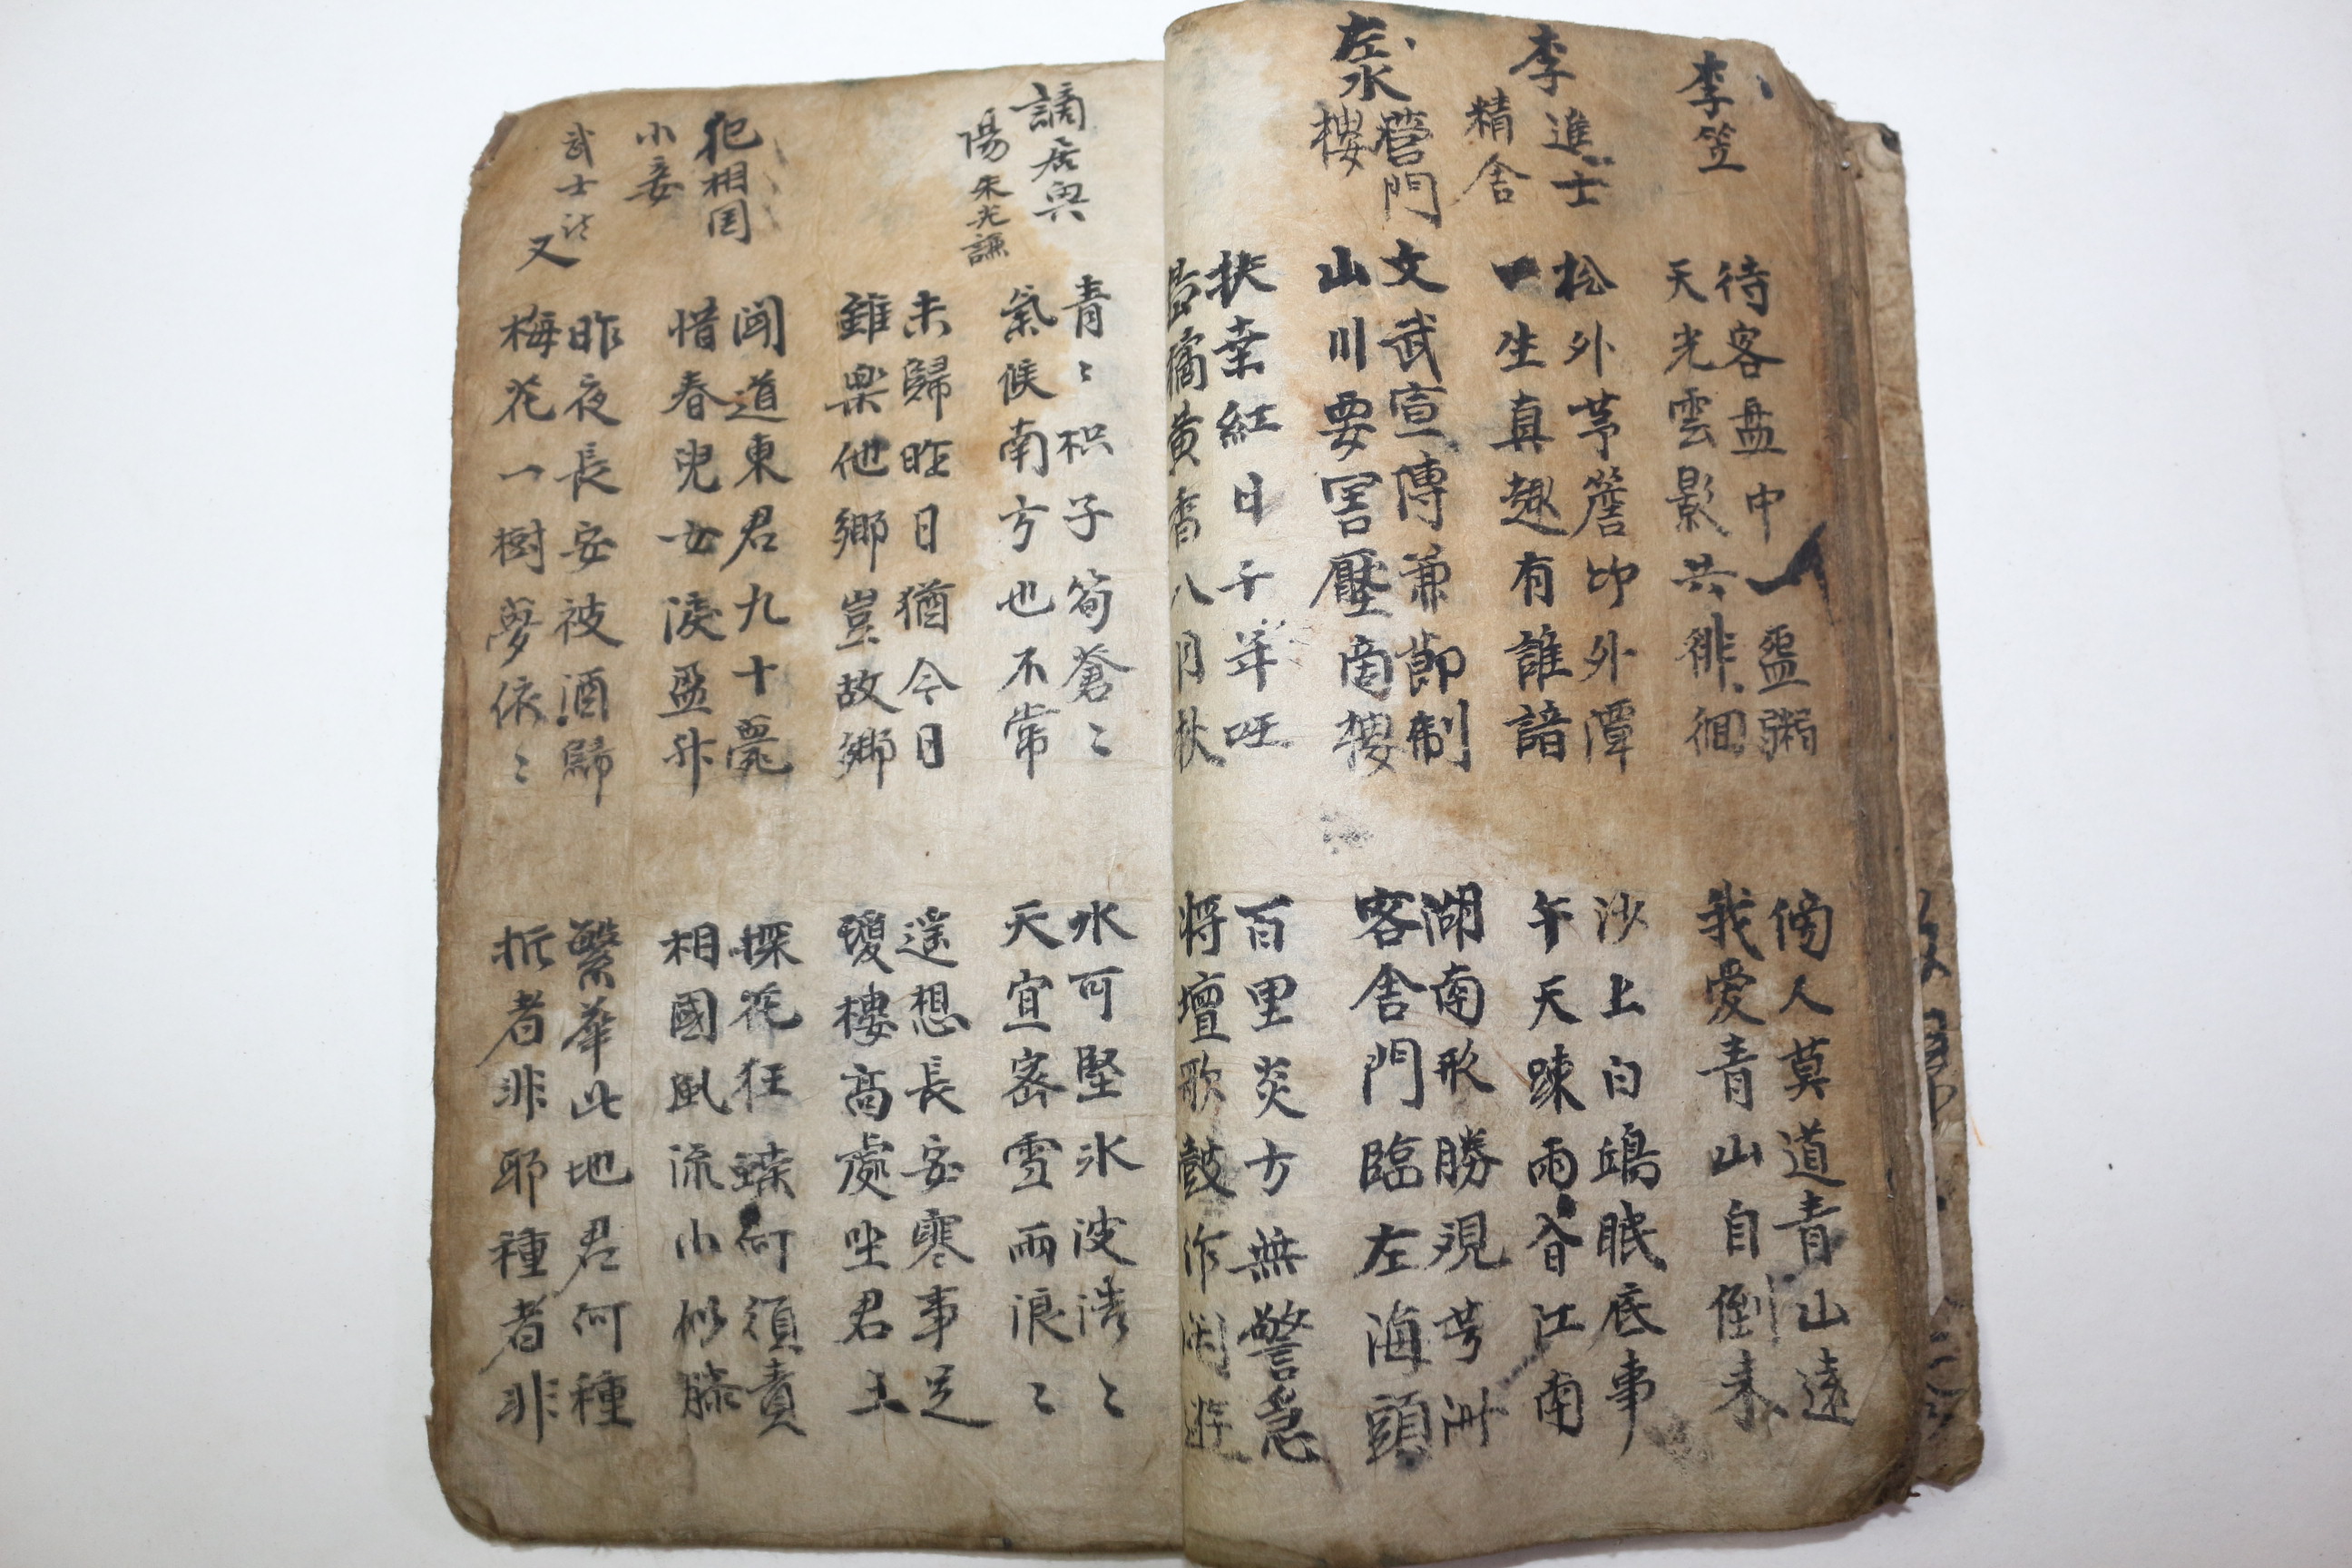 李笠
待客盘中一盌粥
傍人莫道青山遠
天光雲影共徘徊
我愛青山自倒来
李進士
精舍
松外茅簷竹外潭
沙上白鴎眠底事
一生真趣有誰諳
午天踈雨過江南
左水營門
樓
文武宣傳兼節制
湖南形勝現芳洲
山川要害壓南樓
客舍門臨左海頭
扶桒紅日千年旺
百里炎方無警急
橘黄香八月秋
將壇歌鼓作閑遊
謫居與
陽 朱光謙
青〻枳子筍蒼〻
水可堅氷波浩〻
氣候南方也不常
天宜密雪雨浪〻
未歸昨日猶今日
遥想長安寒事足
雖樂他鄉豈故鄉
瓊樓高處坐君王
犯相国
小妾
聞道東君九十薨
探花狂蝶何須責
惜春兒女淚盈升
相國風流小似滕
武士
又
昨夜長安被酒歸
繁華此地君何種
梅花一樹夢依〻
折者非耶種者非